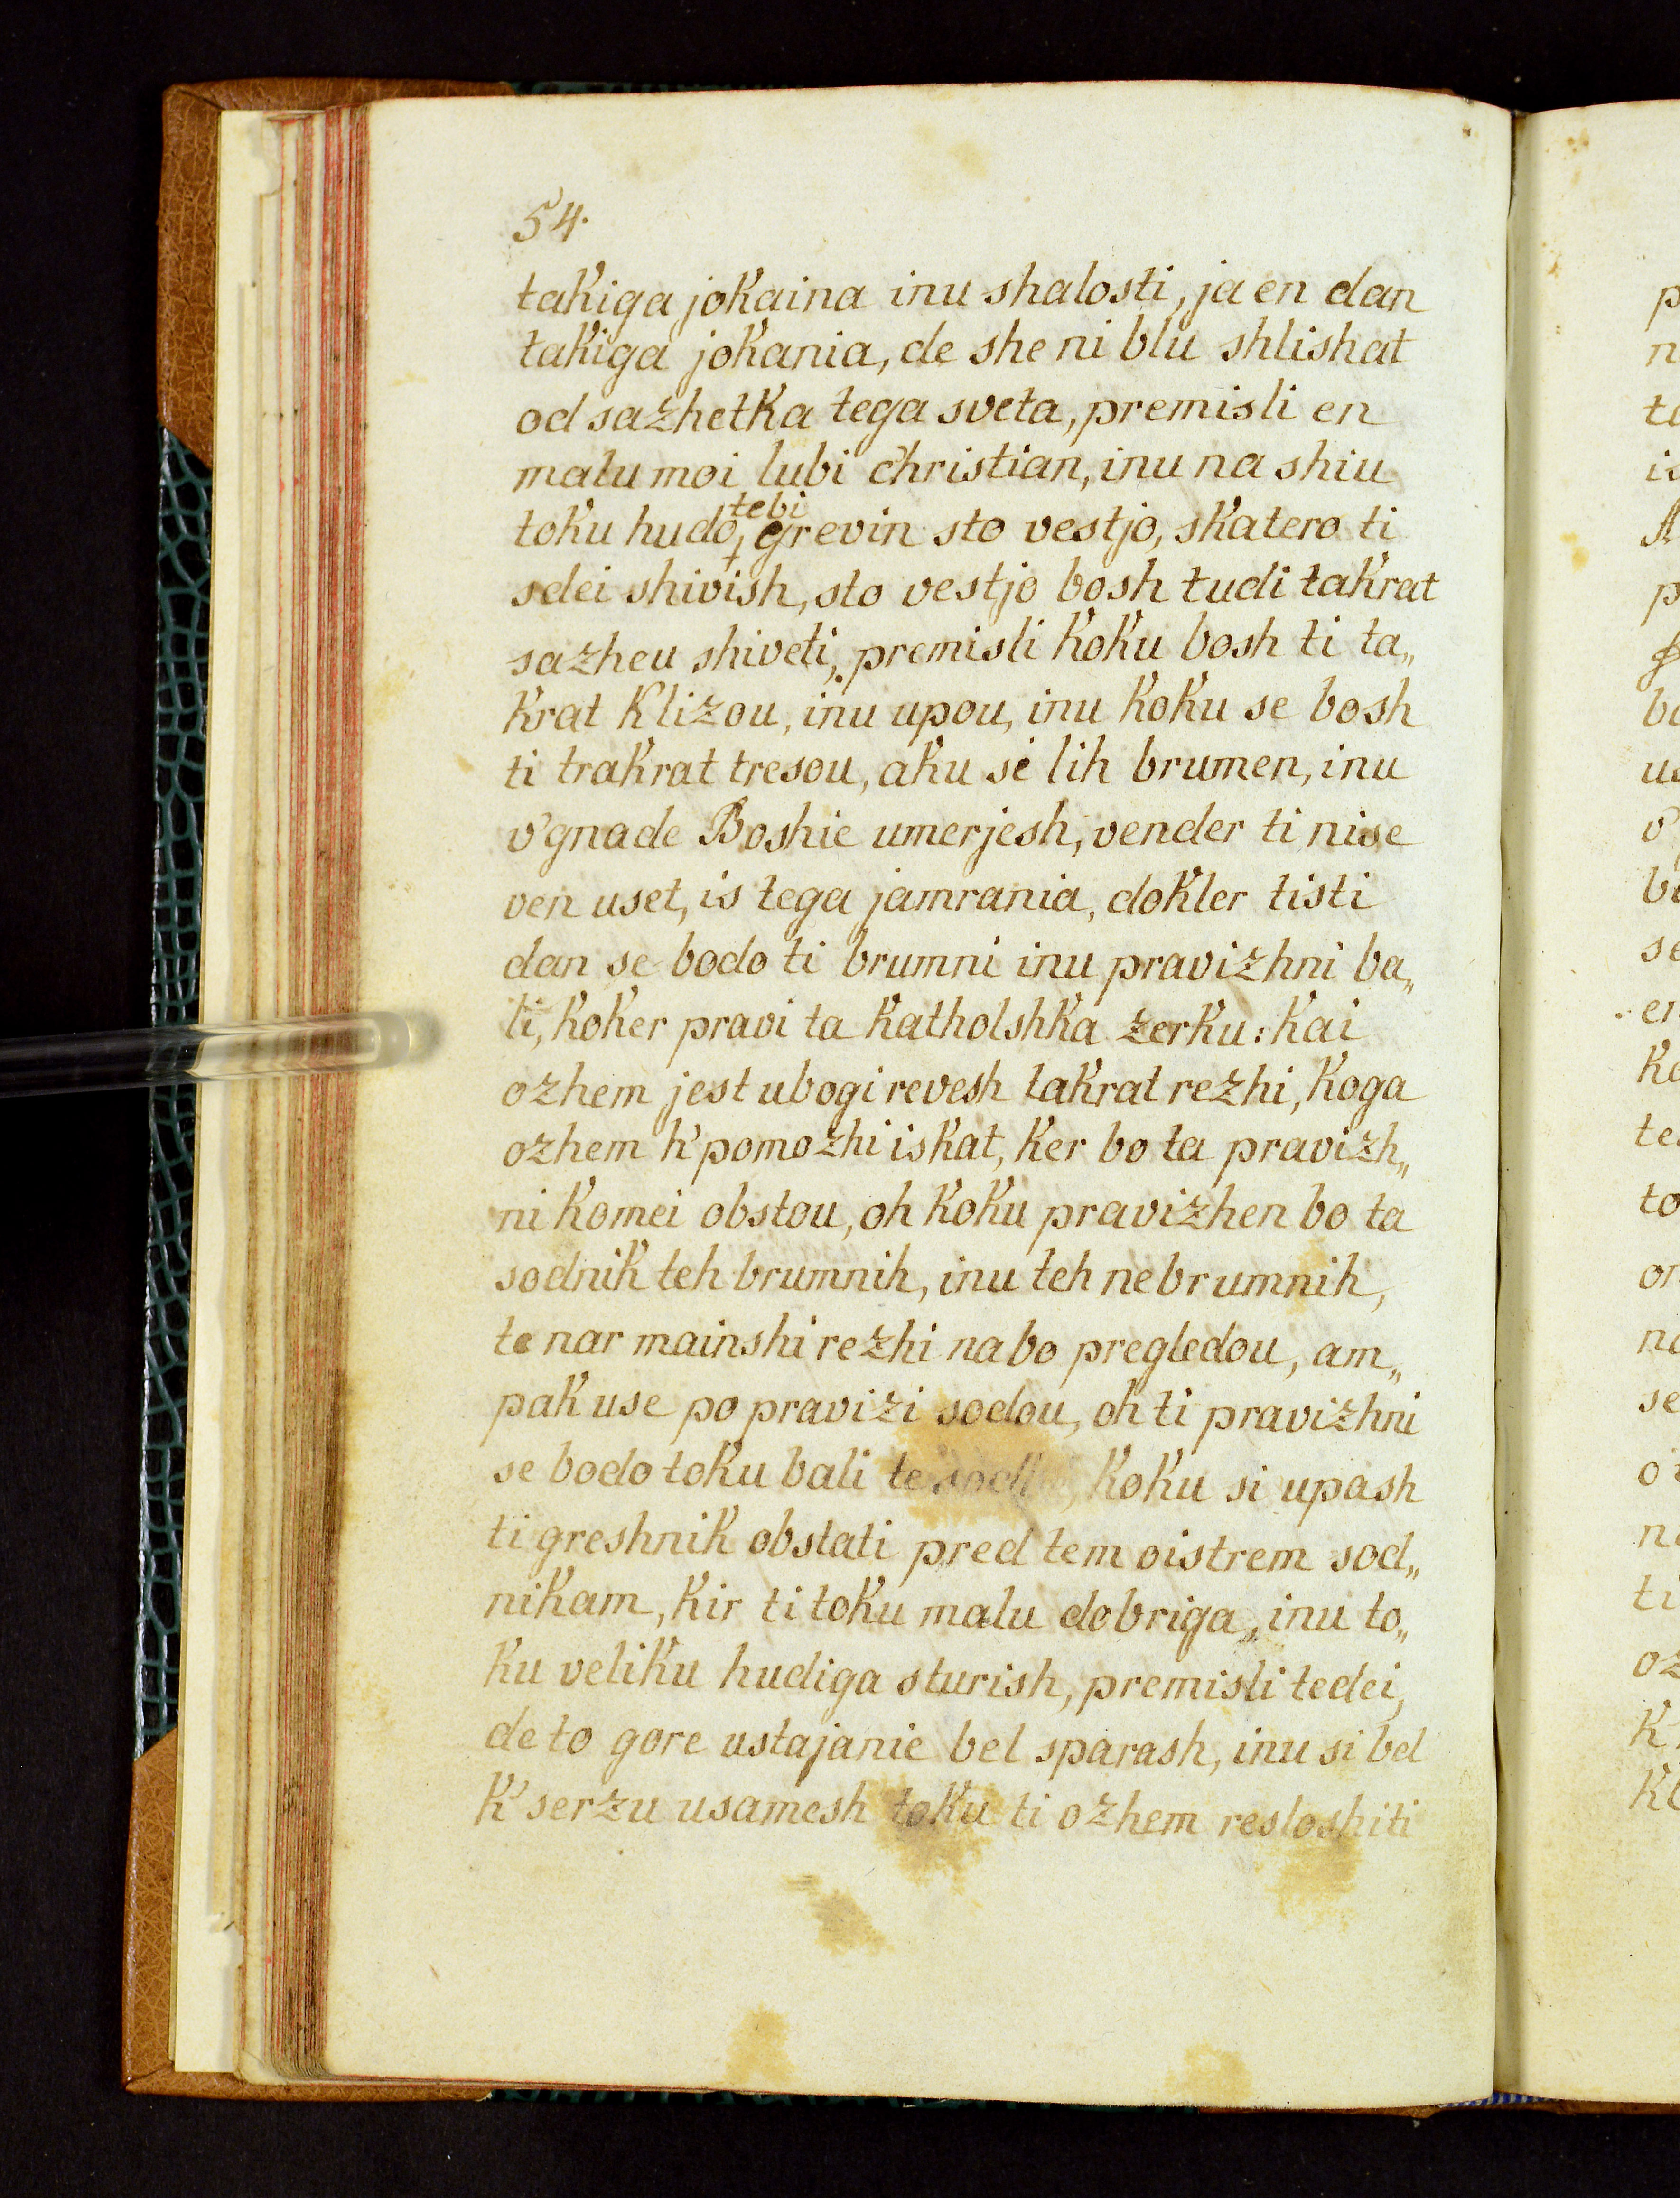 54.
takiga jokaina inu shalosti, ja en dan
takiga jokania, de she ni blu shlishat
od sazhetka tega sveta, premisli en
malu moi lubi christian, inu na shiu
tebi
toku hudo, grevin sto vestjo, skatero ti
sdei shivish, sto vestjo bosh tudi takrat
sazheu shiveti, premisli koku bosh ti ta„
krat klizou, inu upou, inu koku se bosh
ti trakrat tresou, aku si lih brumen, inu
v'gnade Boshie umerjesh, vender ti nise
ven uset, is tega jamrania, dokler tisti
dan se bodo ti brumni inu pravizhni ba„
ti, koker pravi ta katholshka zerku: kai
ozhem jest ubogi revesh takrat rezhi, koga
ozhem k'pomozhi iskat, ker bo ta pravizh„
ni komei obstou, oh koku pravizhen bo ta
sodnik teh brumnih, inu teh nebrumnih,
te nar mainshi rezhi nabo pregledou, am„
pak use po pravizi sodou, oh ti pravizhni
se bodo toku bali te koku si upash
ti greshnik obstati pred tem oistrem sod„
nikam, kir ti toku malu dobriga, inu to„
ku veliku hudiga sturish, premisli tedei,
de to gore ustajanie bel sparash, inu si bel
k'serzu usamesh toku ti ozhem resloshiti